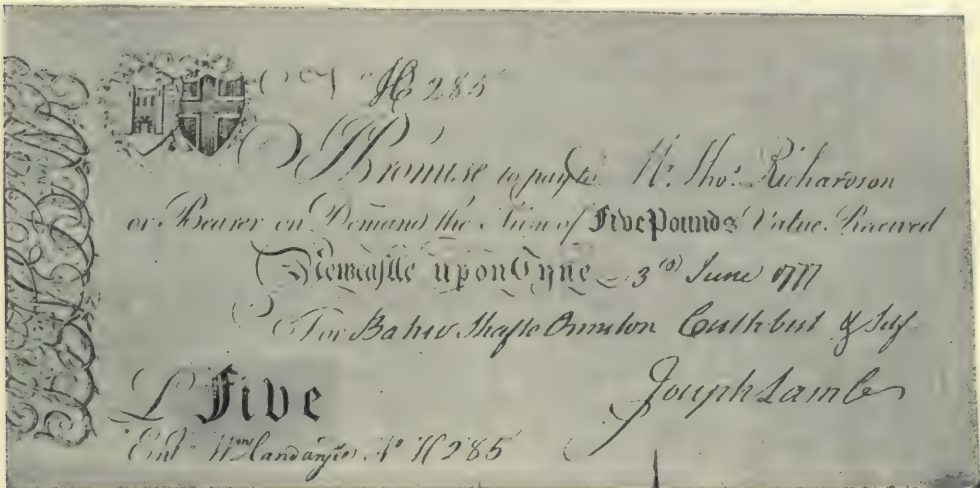 H 285
I Promise to pay to Mr. Thos. Richardson
or Bearer on Demand the Sum of Five Pounds Value Received
Newcastle upon Tyne 3d June 1777
For Baker Shafto Ormston Cuthbert & Self
Joseph Lamb
£ Five
Entd. Wm. No. H 285